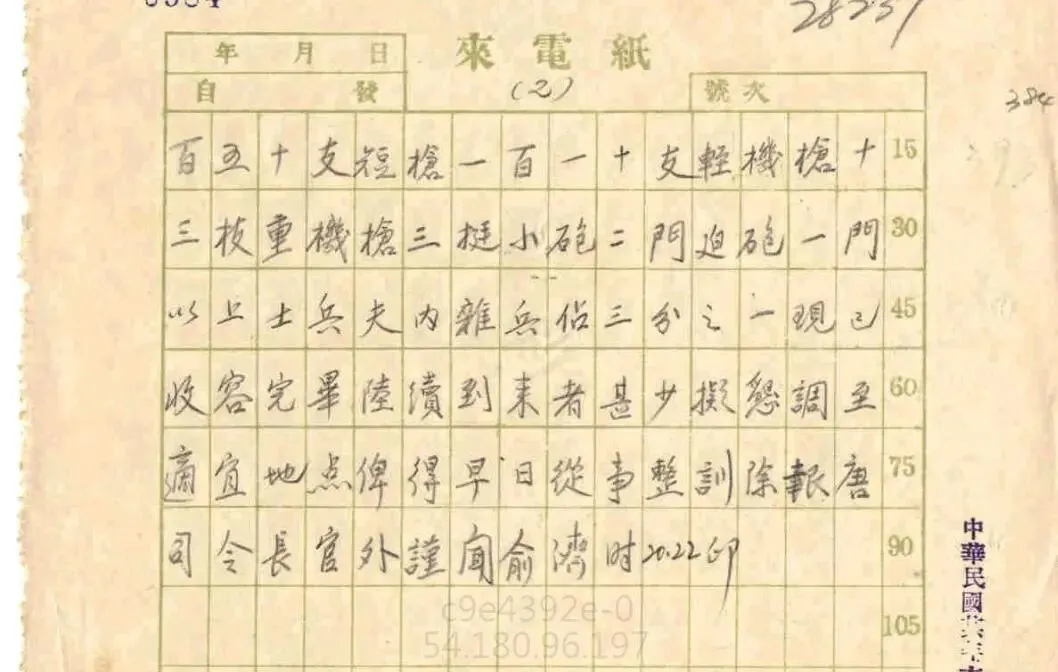 28237
年 月 日
來電紙
自 發
(2)
號次
384
百五十支短槍一百一十支輕機槍十 15
三枝重機槍三挺小砲二門迫砲一門 30
以上士兵夫內雜兵佔三分之一現已 45
收容完畢陸續到来者甚少擬懇調至 60
適宜地点俾得早日從事整訓除報唐 75
司令長官外謹聞俞濟时20.22印 90
105
c9e4392e-0
54.180.96.197
中華民國